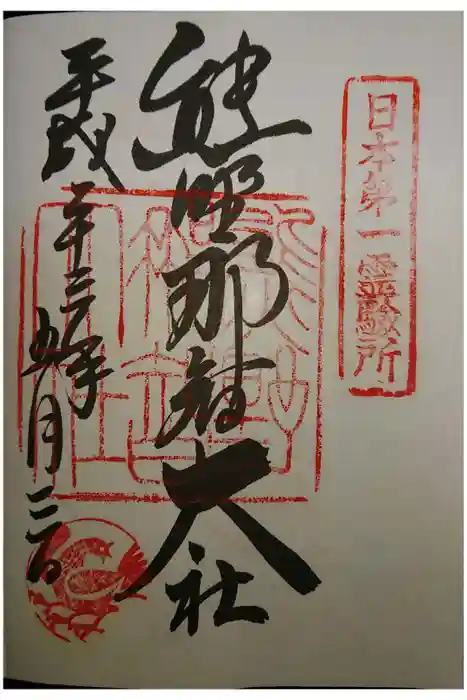 日本第一霊験所
熊野那智大社
平成二十三年五月三日